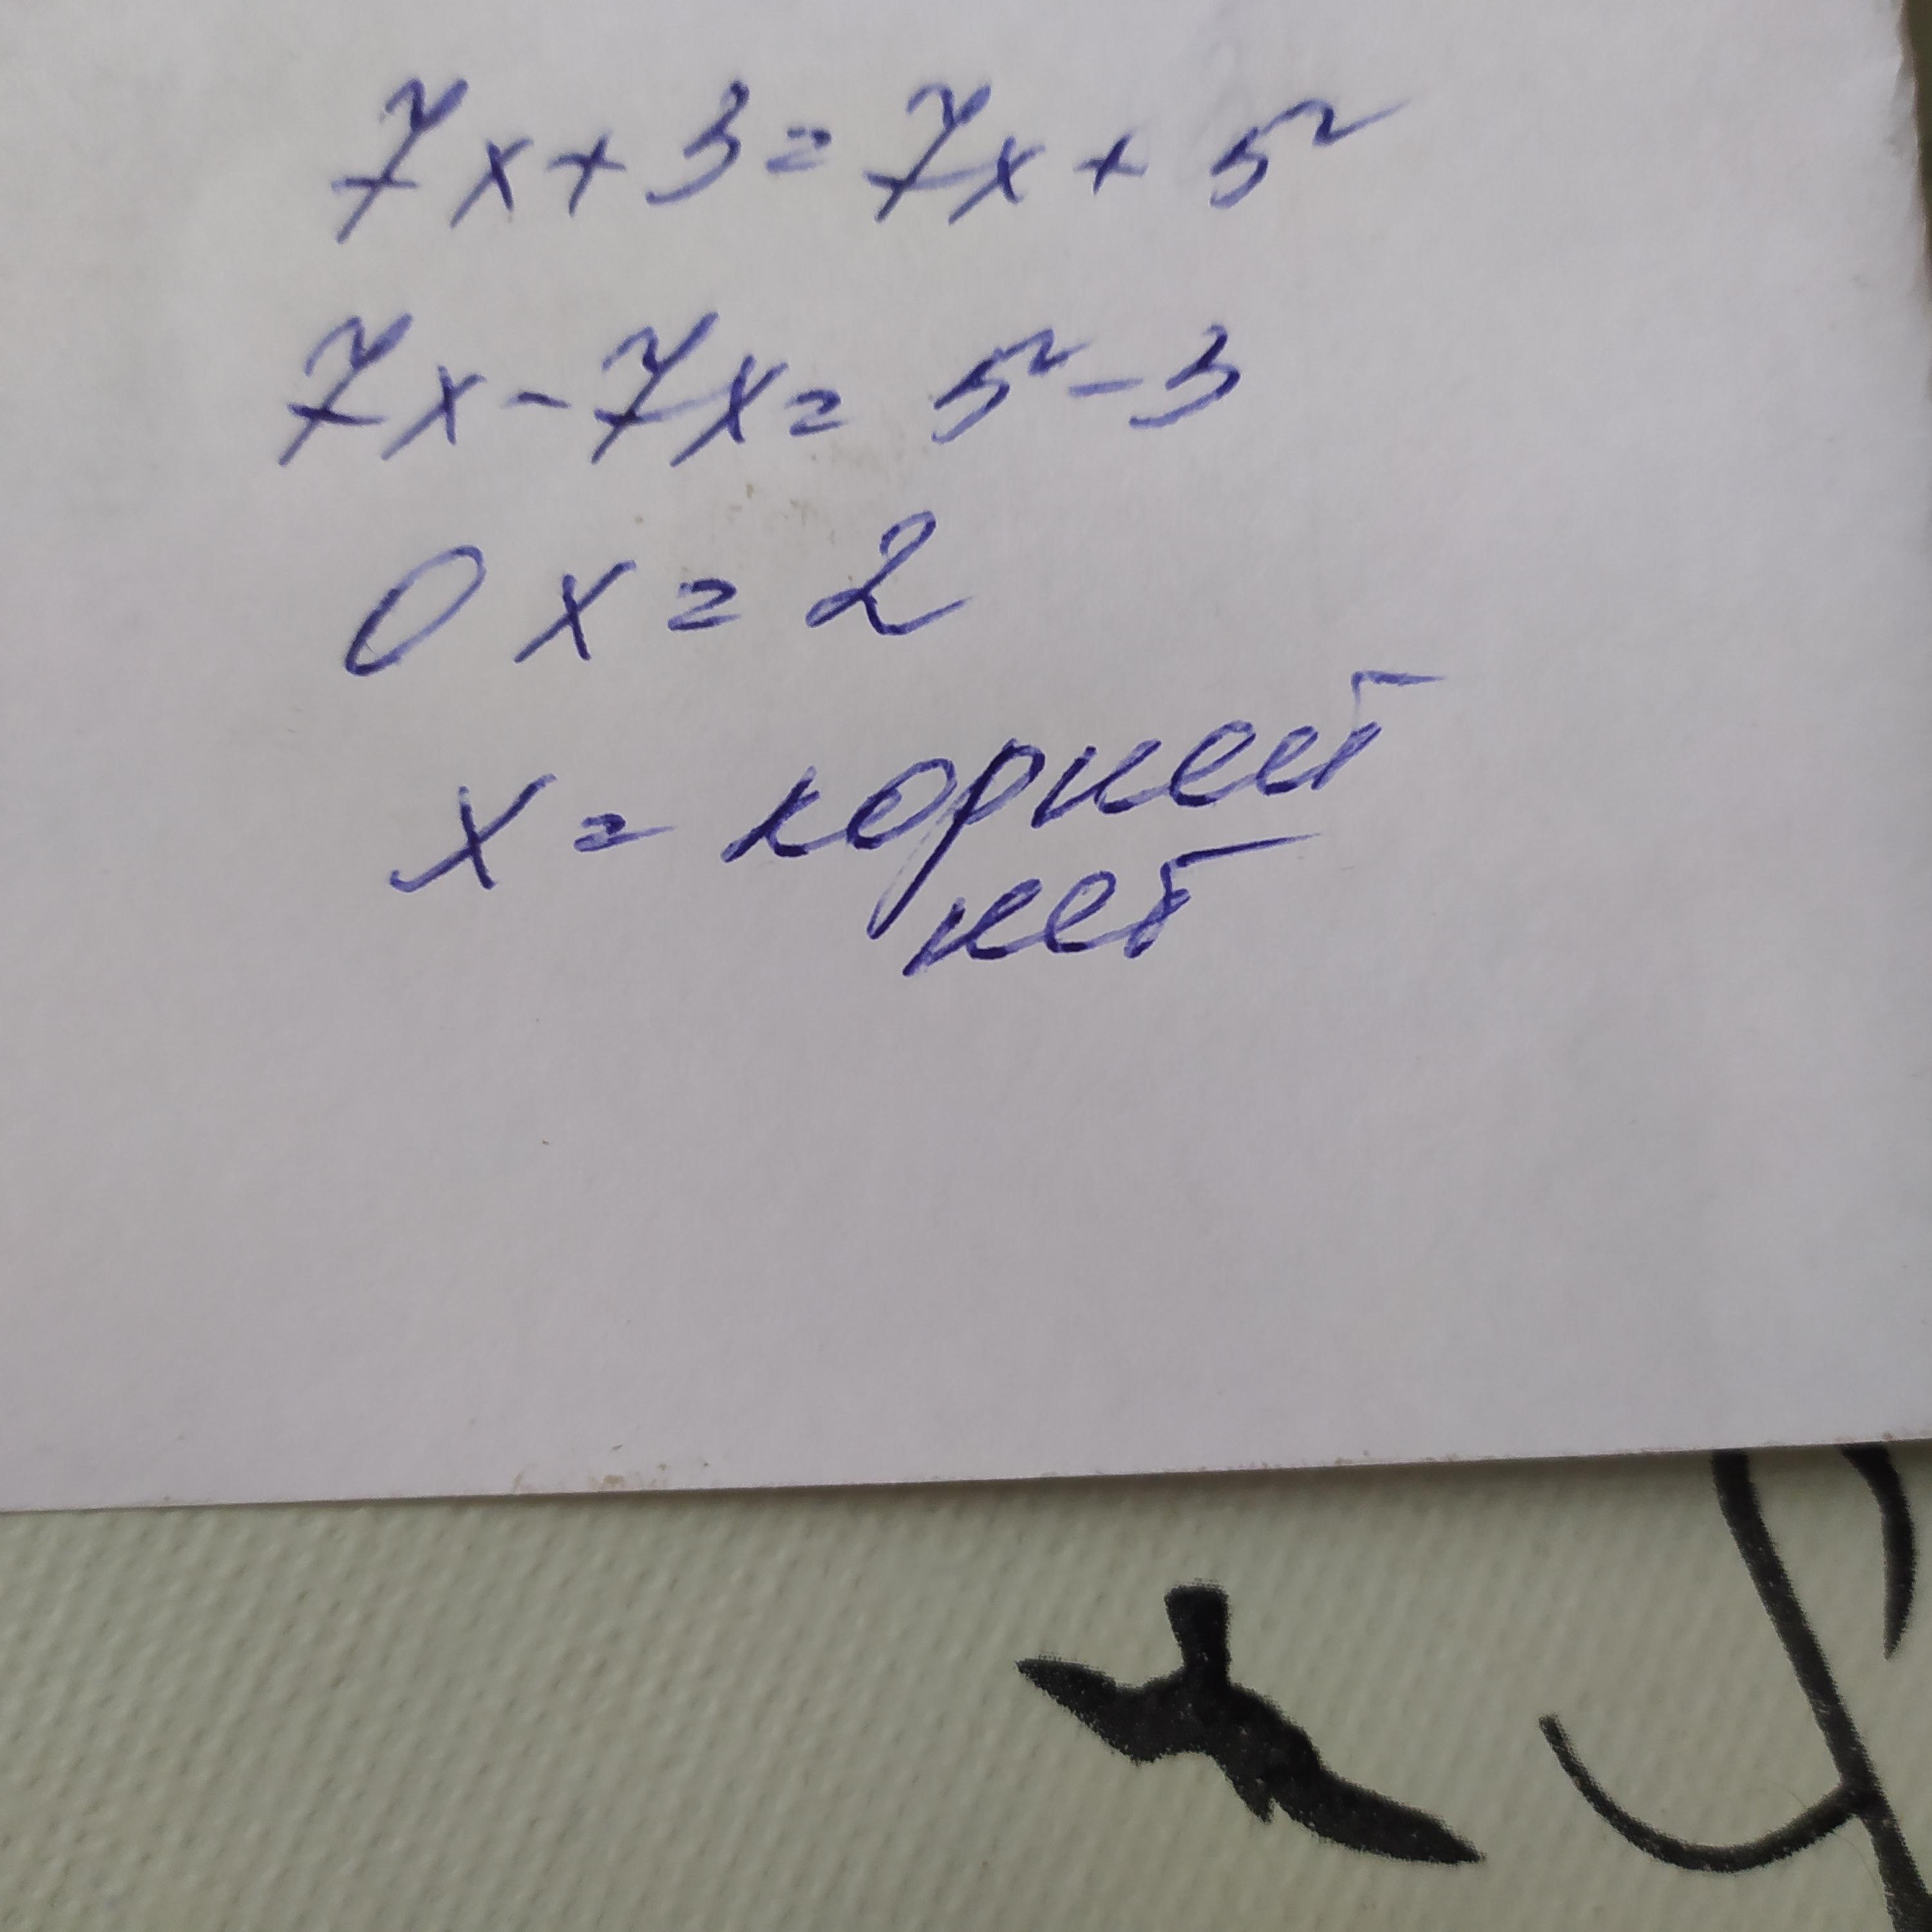 7x + 3 = 7x + 5
7x - 7x = 5 - 3
0x = 2
x = корней
нет